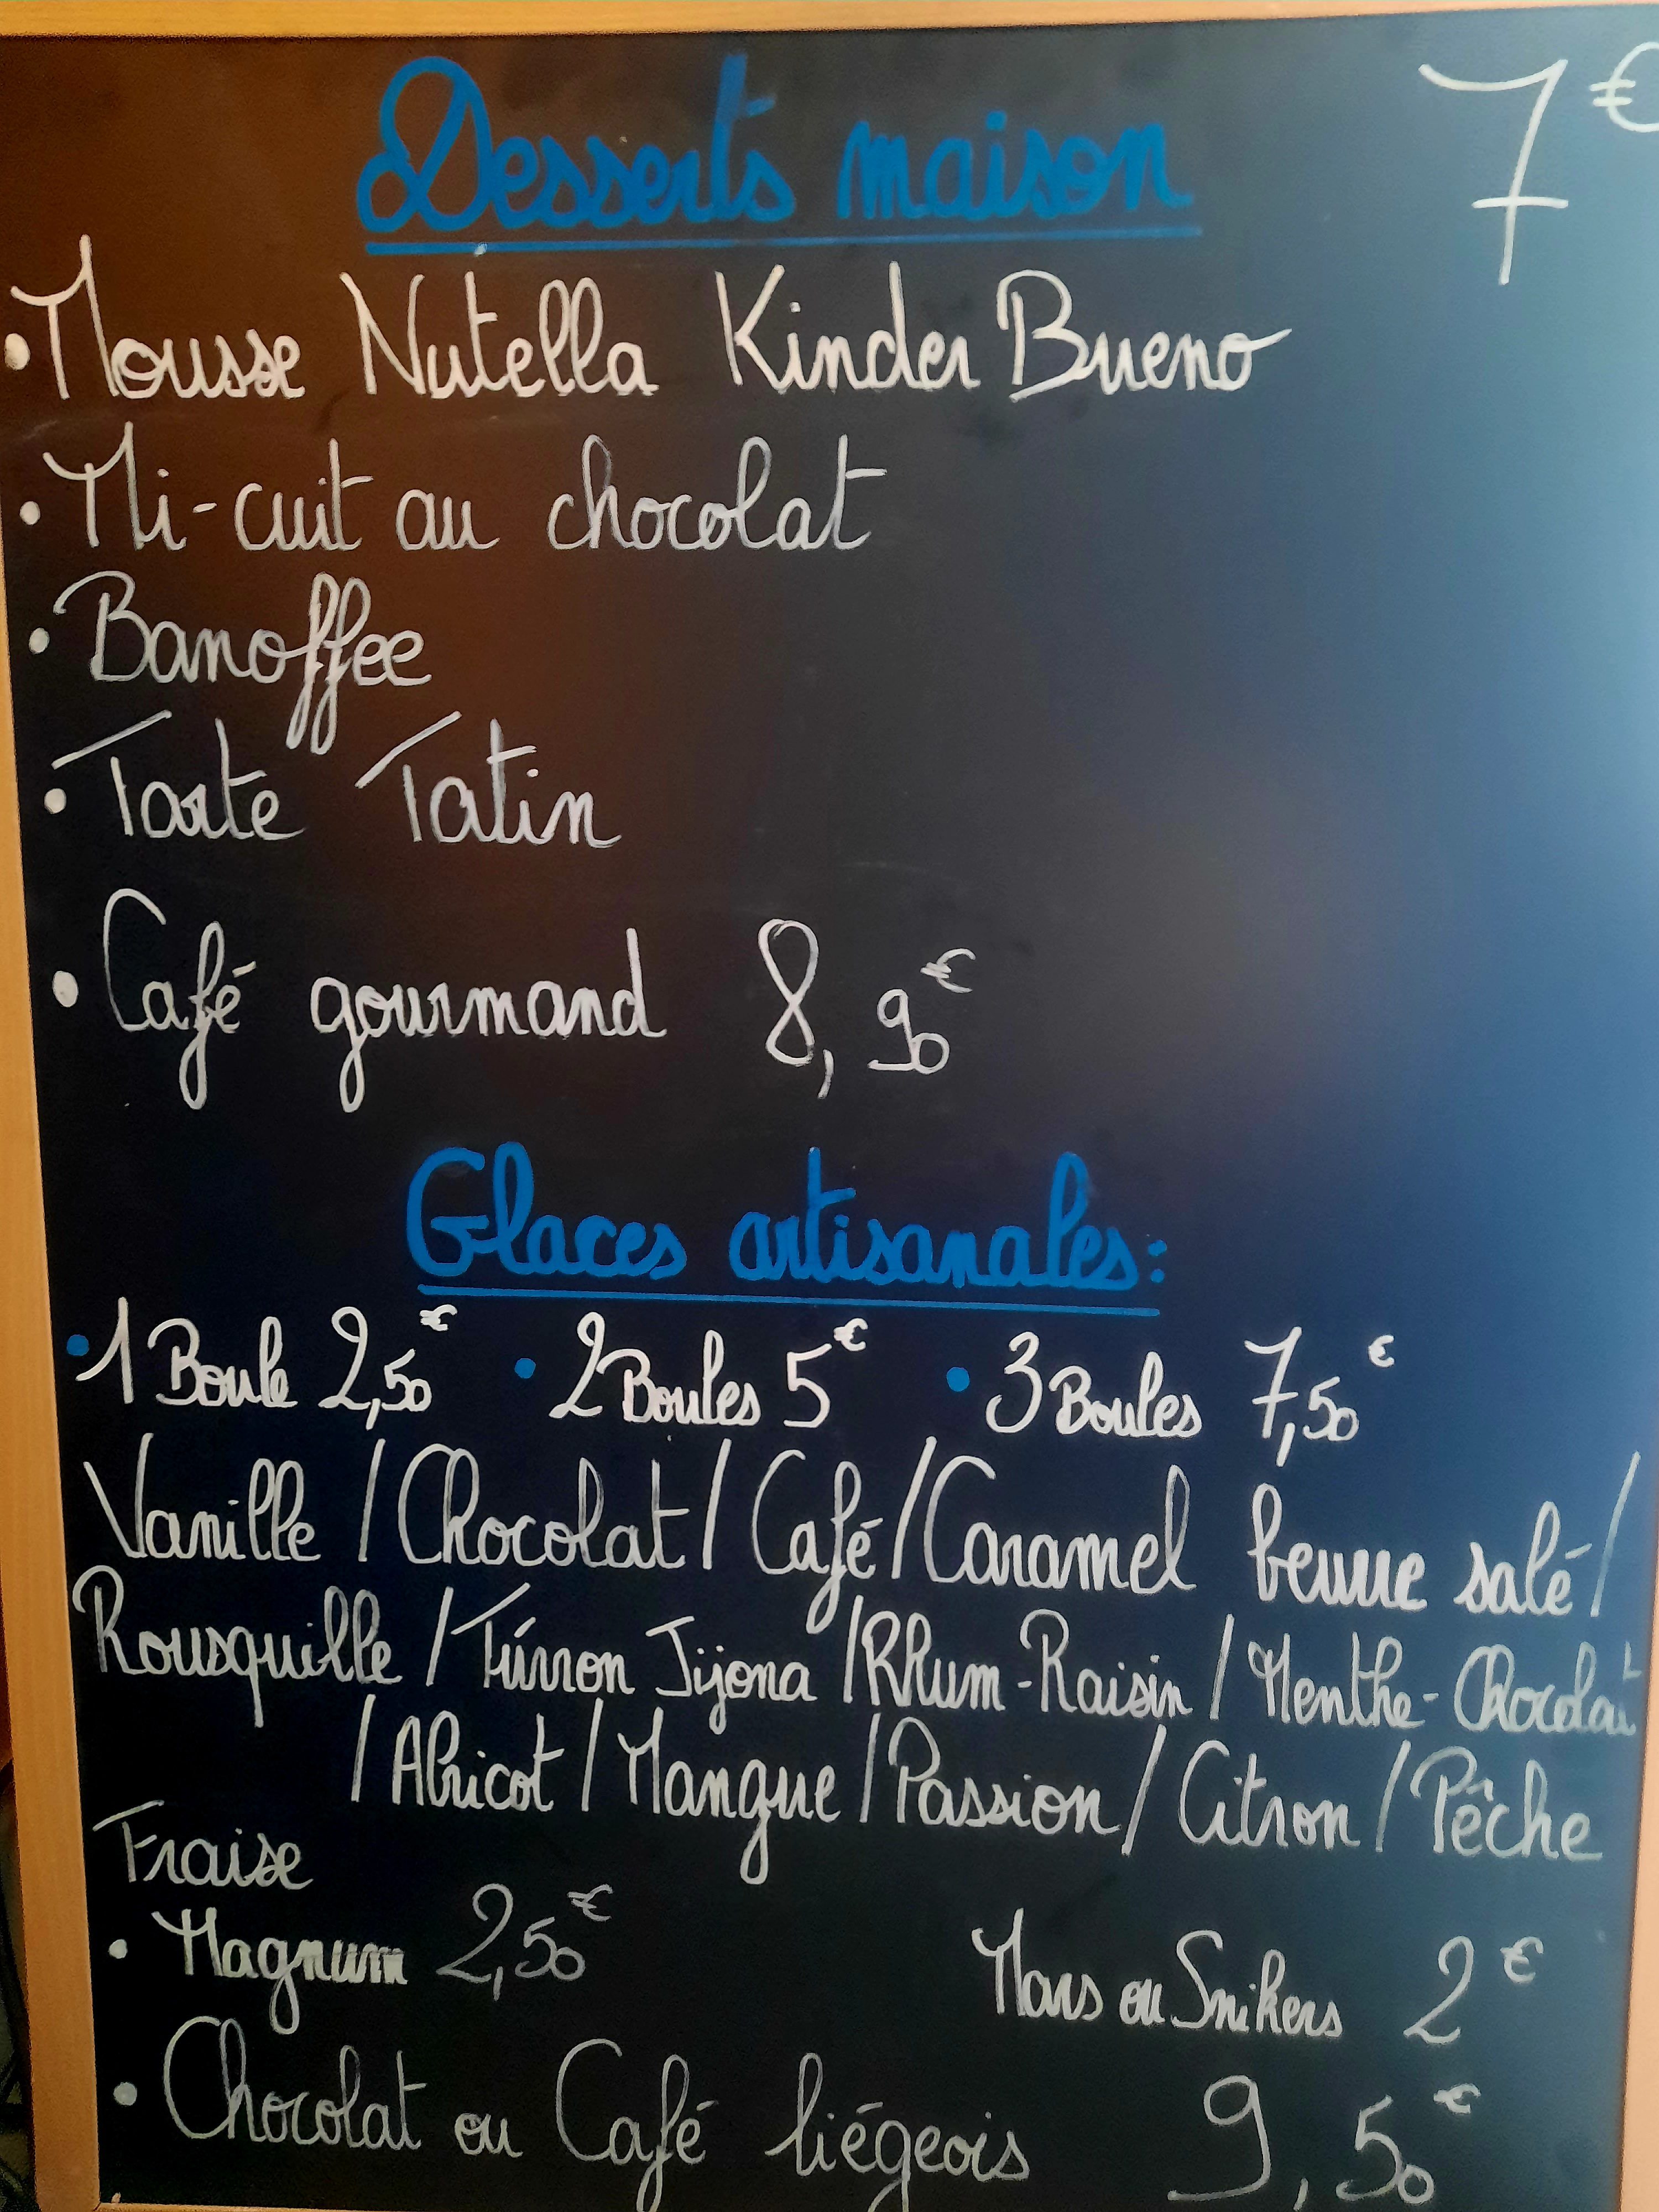 Desserts maison 7€
• Mousse Nutella Kinder Bueno
• Mi-cuit au chocolat
• Banoffee
• Tarte Tatin
• Café gourmand 8,90€
Glaces artisanales:
• 1 Boule 2,50€ • 2 Boules 5€ • 3 Boules 7,50€
Vanille / Chocolat / Café / Caramel beurre salé /
Rousquille / Túrron Jijona / Rhum-Raisin / Menthe-Chocolat
/ Abricot / Mangue / Passion / Citron / Pêche
Fraise
• Magnum 2,50€ Mars ou Snikers 2€
• Chocolat ou Café liégeois 9,50€